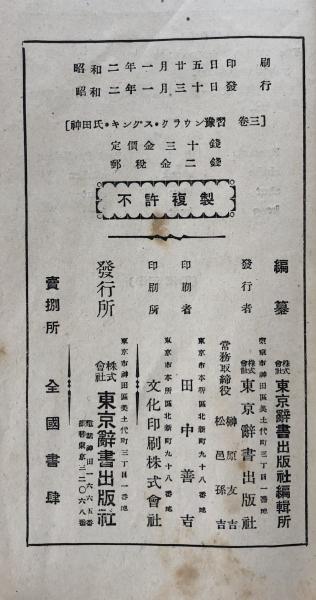 昭和二年一月廿五日印刷
昭和二年一月三十日發行
[神田氏・キングス・クラウン豫習 卷三]
定價金三十錢
郵税金二錢
不許複製
編纂 株式會社 東京辭書出版社編輯所
東京市神田區美土代町三丁目一番地
發行者 株式會社 東京辭書出版社
常務取締役 榊原友吉
松邑孫吉
東京市本所區北新町九十八番地
印刷者 田中善吉
東京市本所區北新町九十八番地
印刷所 文化印刷株式會社
東京市神田區美土代町三丁目一番地
發行所 株式會社 東京辭書出版社
電話神田一六六五番
振替東京三二〇六八番
賣捌所 全國書肆